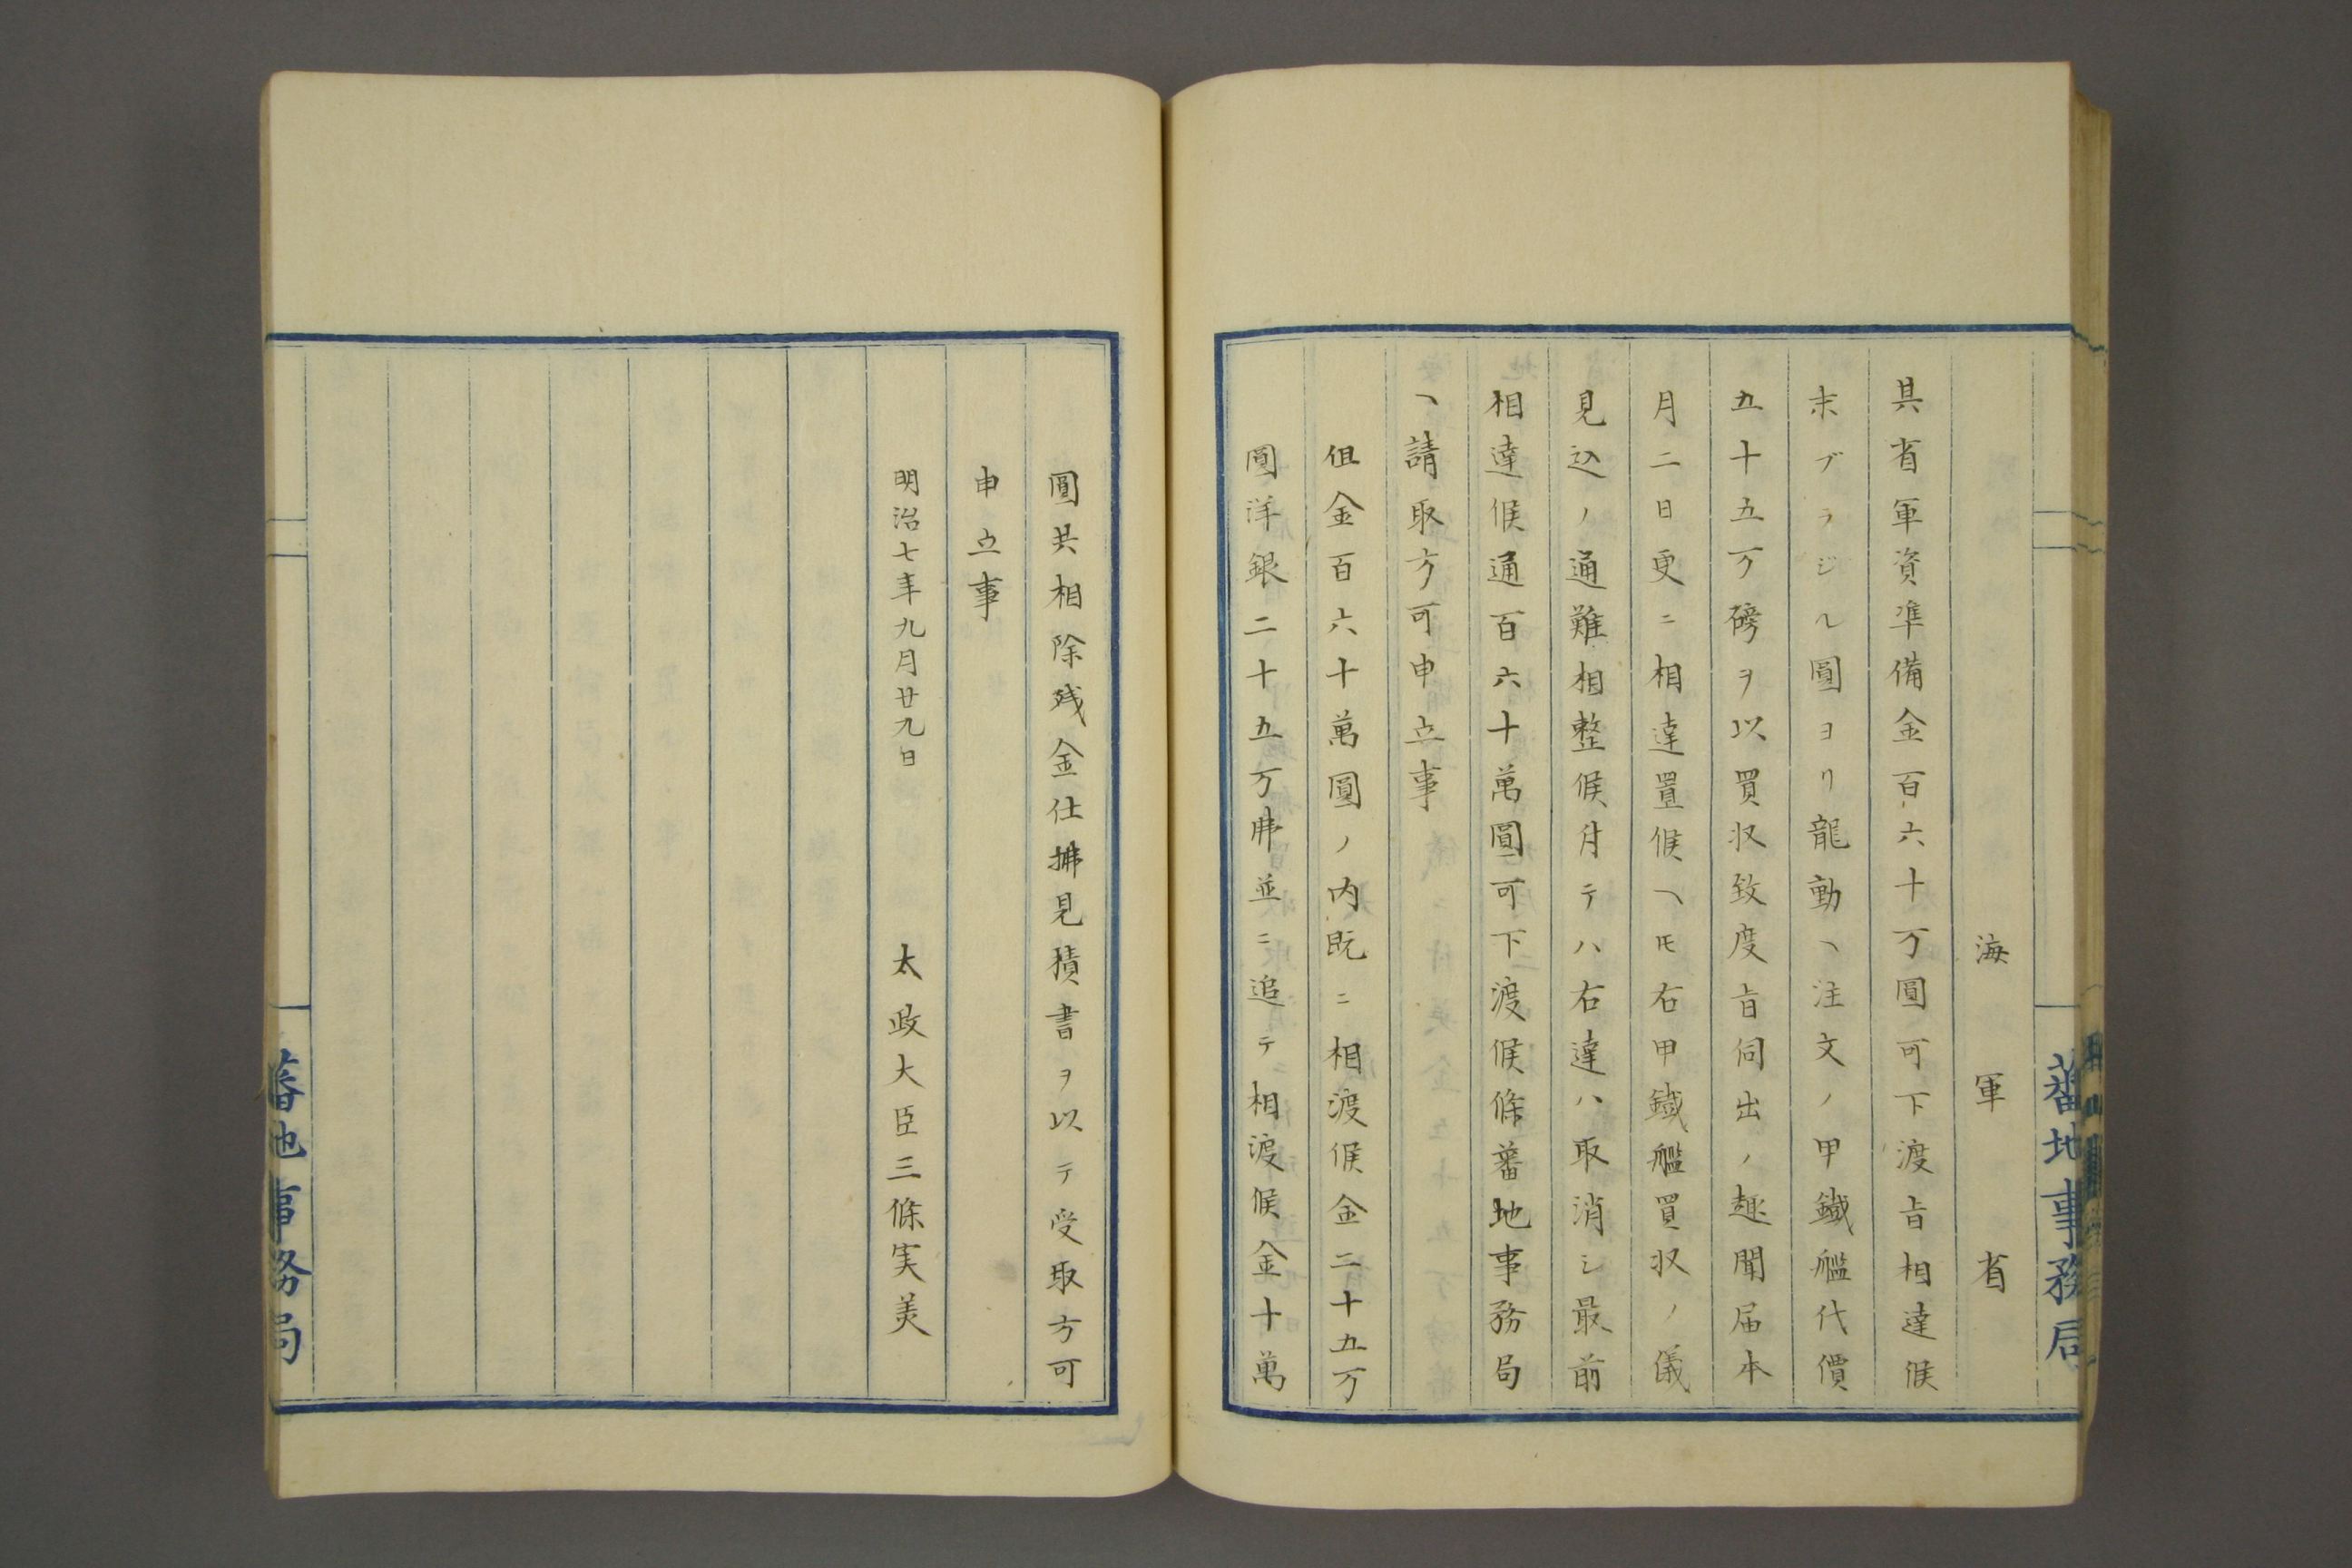 海軍省
其省軍資準備金百六十万圓可下渡旨相達候
末ブラジル圓ヨリ龍動ヘ注文ノ甲鐵艦代價
五十五万磅ヲ以買収致度旨伺出ノ趣聞届本
月二日更ニ相達置候ヘ𪜈右甲鐵艦買収ノ儀
見込ノ通難相整候付テハ右達ハ取消シ最前
相達候通百六十萬圓可下渡候條蕃地事務局
ヘ請取方可申立事
伹金百六十萬圓ノ内既ニ相渡候金二十五万
圓洋銀二十五万弗並ニ追テ相渡候金十萬
蕃地事務局
圓共相除残金仕拂見積書ヲ以テ受取方可
申立事
明治七年九月廿九日 太政大臣三條実美
蕃地事務局